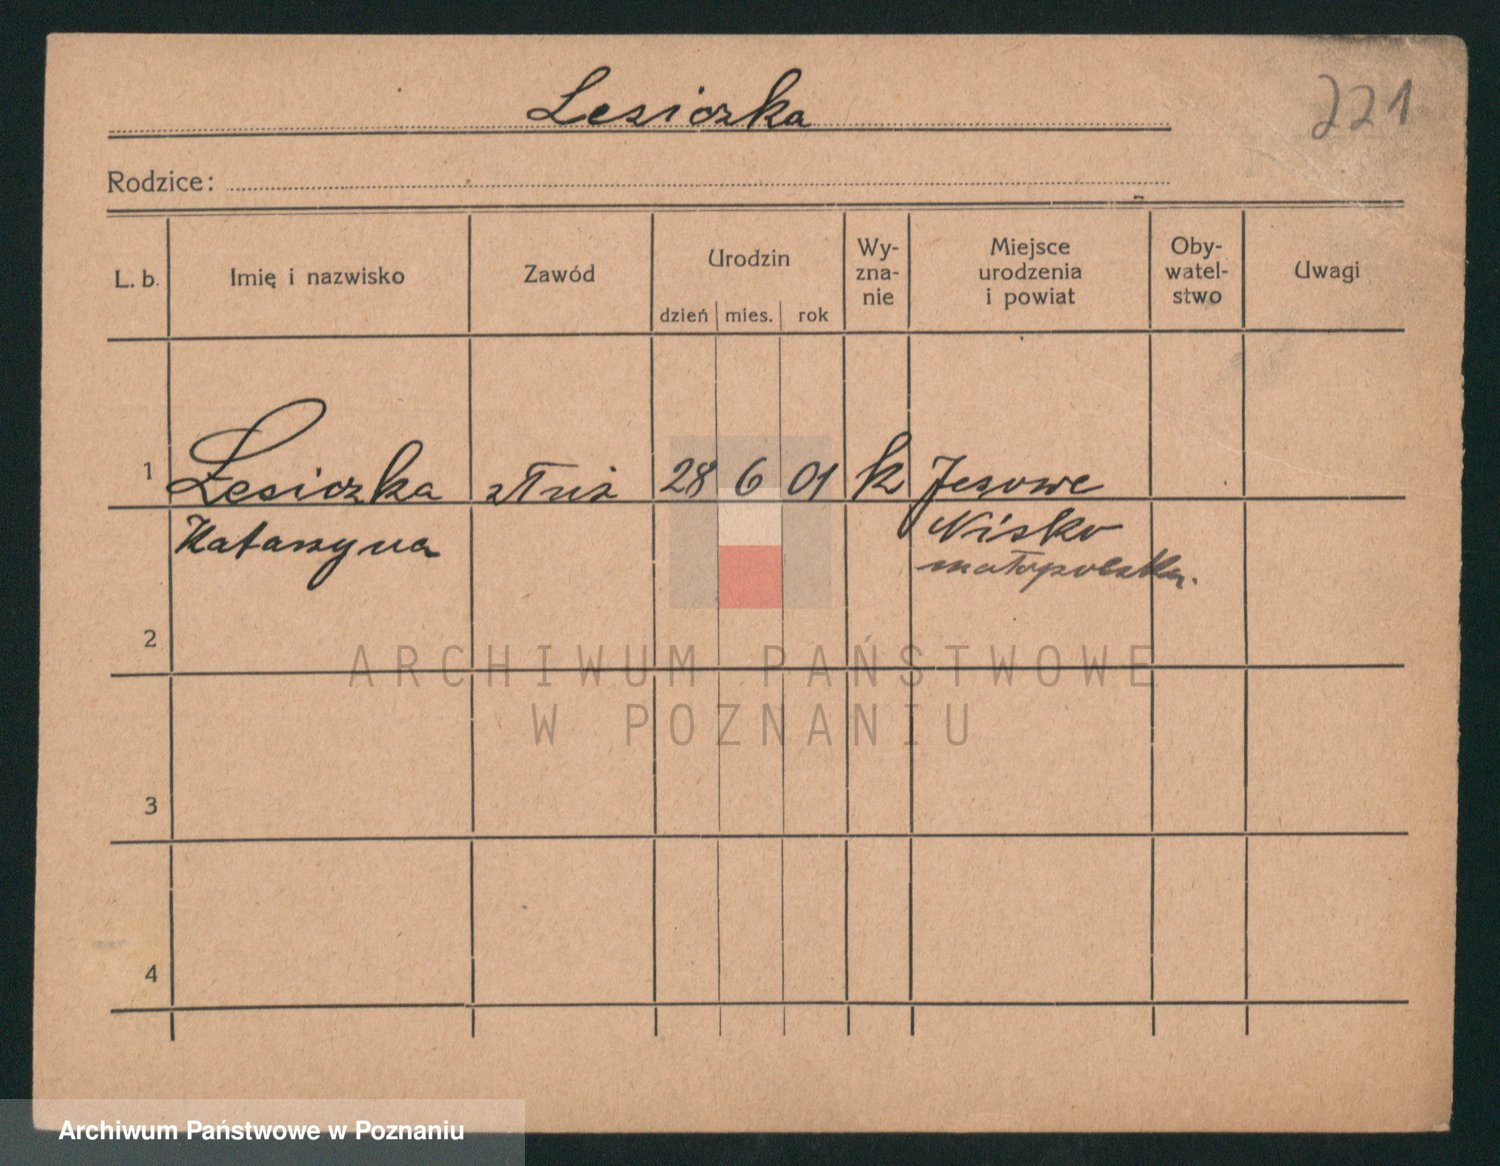 Lesiczka
221
Rodzice:
L. b. Imię i nazwisko Zawód Urodzin dzień mies. rok Wy-zna-nie Miejsce urodzenia i powiat Oby-watel-stwo Uwagi
1 Lesiczka służ 28 6 01 k Jeżowe
Katarzyna Nisko
małopolska.
2
3
4
ARCHIWUM PAŃSTWOWE
W POZNANIU
Archiwum Państwowe w Poznaniu